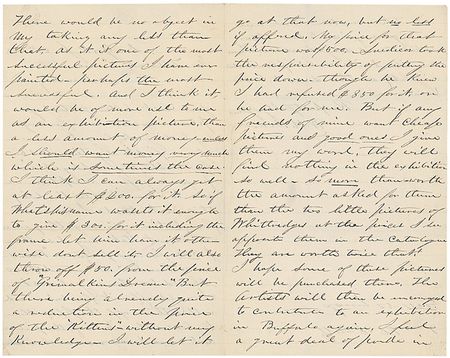 There would be no object in
my taking any less than
that. as it is one of the most
successful pictures I have ever
painted. perhaps the most
successful. And I think it
would be of more use to me
as an exhibition picture, than
a less amount of money, unless
I should want money very much
which is sometimes the case.
I think I can always get
at least $200. for it. so if
What's his name wants it enough
to give $300. for it including the
frame let him have it other-
wise dont sell it. I will also
throw off $50. from the price
of "Grimalkins Dream" But
there being already quite
a reduction in the price
of the "Kittens" without my
Knowledge. I will let it
go at that now, but no less
if afford. My price for that
picture was $500. took
the responsibility of putting the
price down though he knew
I had refused $350 for it or
he had for me. But if any
friends of mine want cheap
pictures and good ones I give
them my word, they will
find nothing in the exhibition
so well so worth
the amount asked for them
than the two little pictures of
Whittredges at the prices I see
opposite them in the Catalogue
They are worth twice that.
I hope some of these pictures
will be purchased there. The
Artists will then be encouraged
to contribute to an exhibition
in Buffalo again. I feel
a great deal of pride in